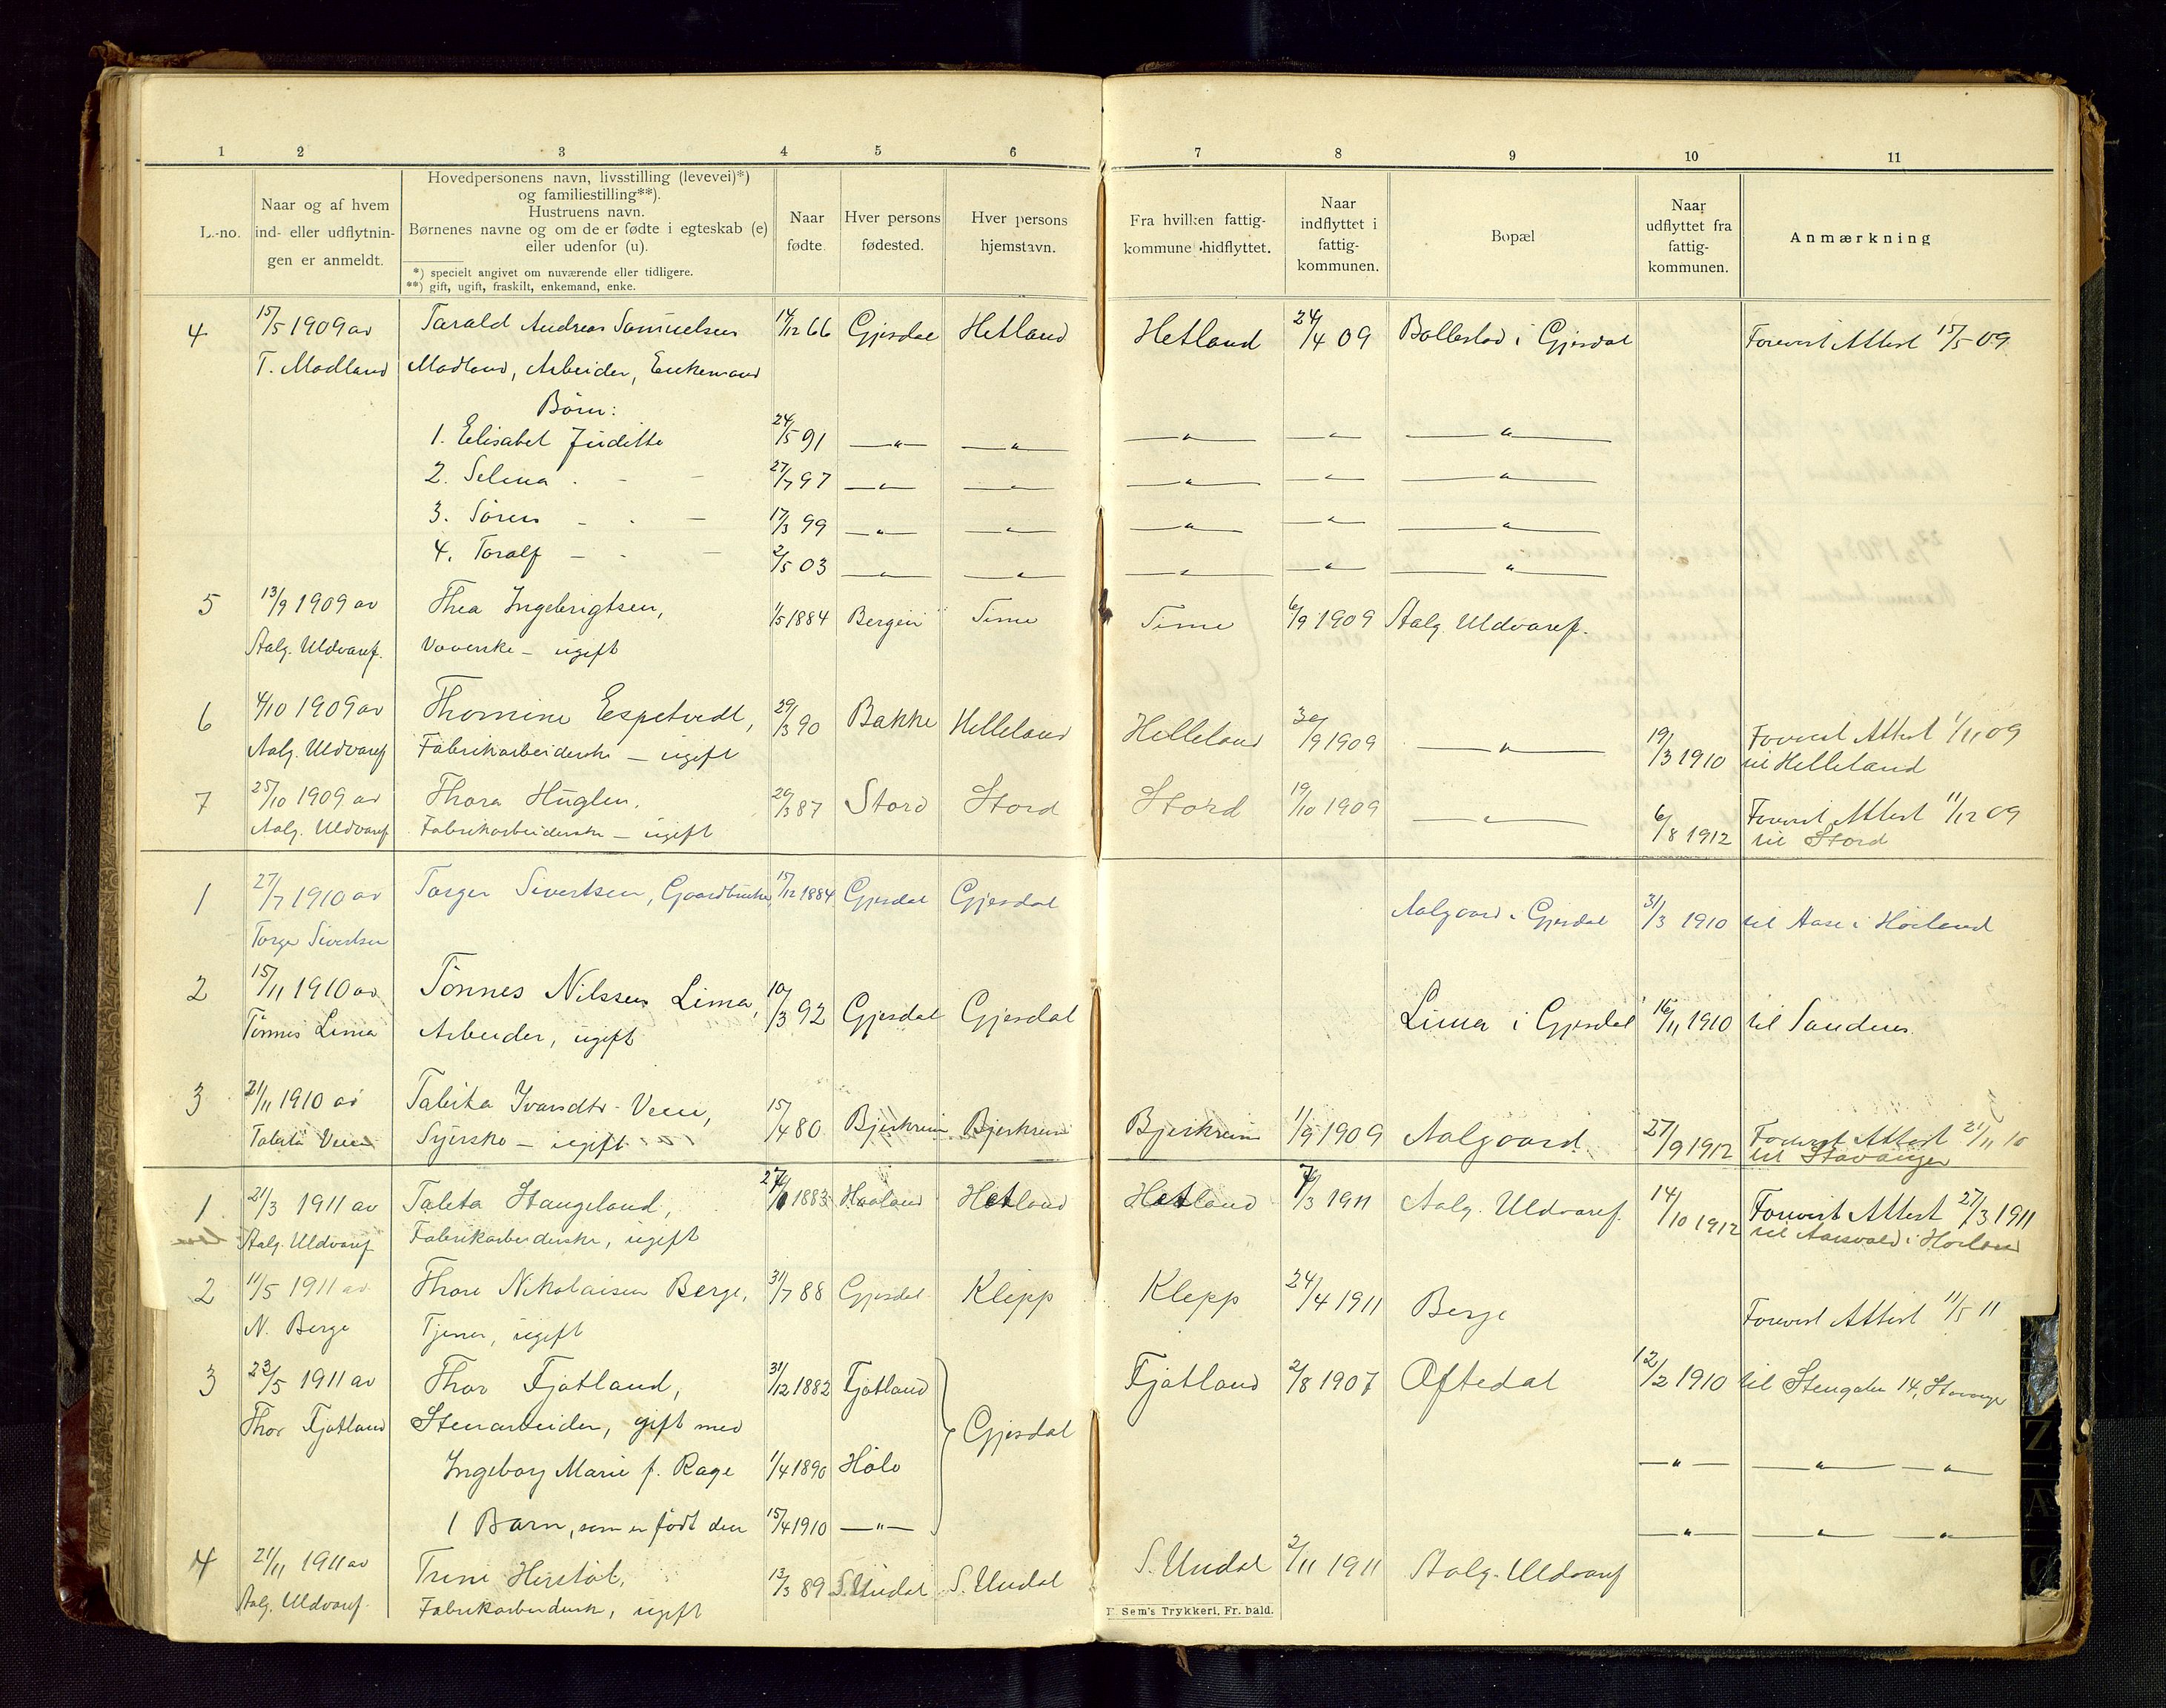 1 2 3 4 5 6 7 8 9 10 11
L.-no.
Naar og af hvem
ind- eller udflytnin-
gen er anmeldt.
Hovedpersonens navn, livsstilling (levevei)*)
og familiestilling**).
Hustruens navn.
Børnenes navne og om de er fødte i egteskab (e)
eller udenfor (u).
*) specielt angivet om nuværende eller tidligere.
**) gift, ugift, fraskilt, enkemand, enke.
Naar
fødte.
Hver persons
fødested.
Hver persons
hjemstavn.
Fra hvilken fattig-
kommune hidflyttet.
Naar
indflyttet i
fattig-
kommunen.
Bopæl
Naar
udflyttet fra
fattig-
kommunen.
Anmærkning
4 15/5 1909 av Tarald Andreas Samuelsen 14/12 66 Gjesdal Hetland Hetland 24/4 09 Bollestad i Gjesdal Forevist Attest 15/5 09
T. Madland Madland, Arbeider, Enkemand
Børn:
1. Elisabet Juditte 24/5 91 —"— —"— —"— —"— —"—
2. Selma - - 27/7 97 —"— —"— —"— —"— —"—
3. Søren - - - 17/3 99 —"— —"— —"— —"— —"—
4. Toralf - - - 2/5 03 —"— —"— —"— —"— —"—
5 13/9 1909 av Thea Ingebrigtsen, 1/5 1884 Bergen Time Time 6/9 1909 Aalg. Uldvaref.
Aalg. Uldvaref. Væverske - ugift
6 4/10 1909 av Thomine Espetvedt, 29/3 90 Bakke Helleland Helleland 30/9 1909 —"— 19/3 1910 Forevist Attest 1/11 09
Aalg. Uldvaref Fabrikarbeiderske - ugift til Helleland
7 25/10 1909 av Thora Huglen, 29/3 87 Stord Stord Stord 19/10 1909 —"— 6/8 1912 Forevist Attest 11/12 09
Aalg. Uldvaref Fabrikarbeiderske - ugift til Stord
1 27/7 1910 av Torger Sivertsen, Gaardbruker 15/12 1884 Gjesdal Gjesdal Aalgaard i Gjesdal 31/3 1910 til Aase i Høiland
Torger Sivertsen
2 15/11 1910 av Tønnes Nilssen Lima, 10/3 92 Gjesdal Gjesdal Lima i Gjesdal 16/11 1910 til Sandnes.
Tønnes Lima Arbeider, ugift
3 21/11 1910 av Tabita Ivarsdtr. Veen, 15/4 80 Bjerkreim Bjerkreim Bjerkreim 1/9 1909 Aalgaard 27/9 1912 Forevist Attest 21/11 10
Tabita Veen Syerske - ugift til Stavanger
1 21/3 1911 av Taleta Stangeland, 1883 Haaland Hetland Hetland 7/3 1911 Aalg. Uldvaref. 14/10 1912 Forevist Attest 27/3 1911
Aalg. Uldvaref Fabrikarbeiderske, ugift til i Høiland
2 11/5 1911 av Thore Nikolaisen Berge, 31/7 88 Gjesdal Klepp Klepp 24/4 1911 Berge Forevist Attest 11/5 11
N. Berge Tjener, ugift
3 23/5 1911 av Thor Fjotland, 31/12 1882 Fjotland Gjesdal Fjotland 2/8 1907 Oftedal 12/2 1910 til Stengaten 14, Stavanger
Thor Fjotland Stenarbeider, gift med
Ingeborg Marie f. Rage 1/4 1890 Høle —"— —"— —"—
1 Barn, som er født den 15/4 1910 —"— —"— —"— —"—
4 21/11 1911 av Trine Hirstøl, 13/3 89 S. Undal S. Undal S. Undal 2/11 1911 Aalg. Uldvaref
Aalg. Uldvaref. Fabrikarbeiderske, ugift
Sem's Trykkeri, Fr. hald.